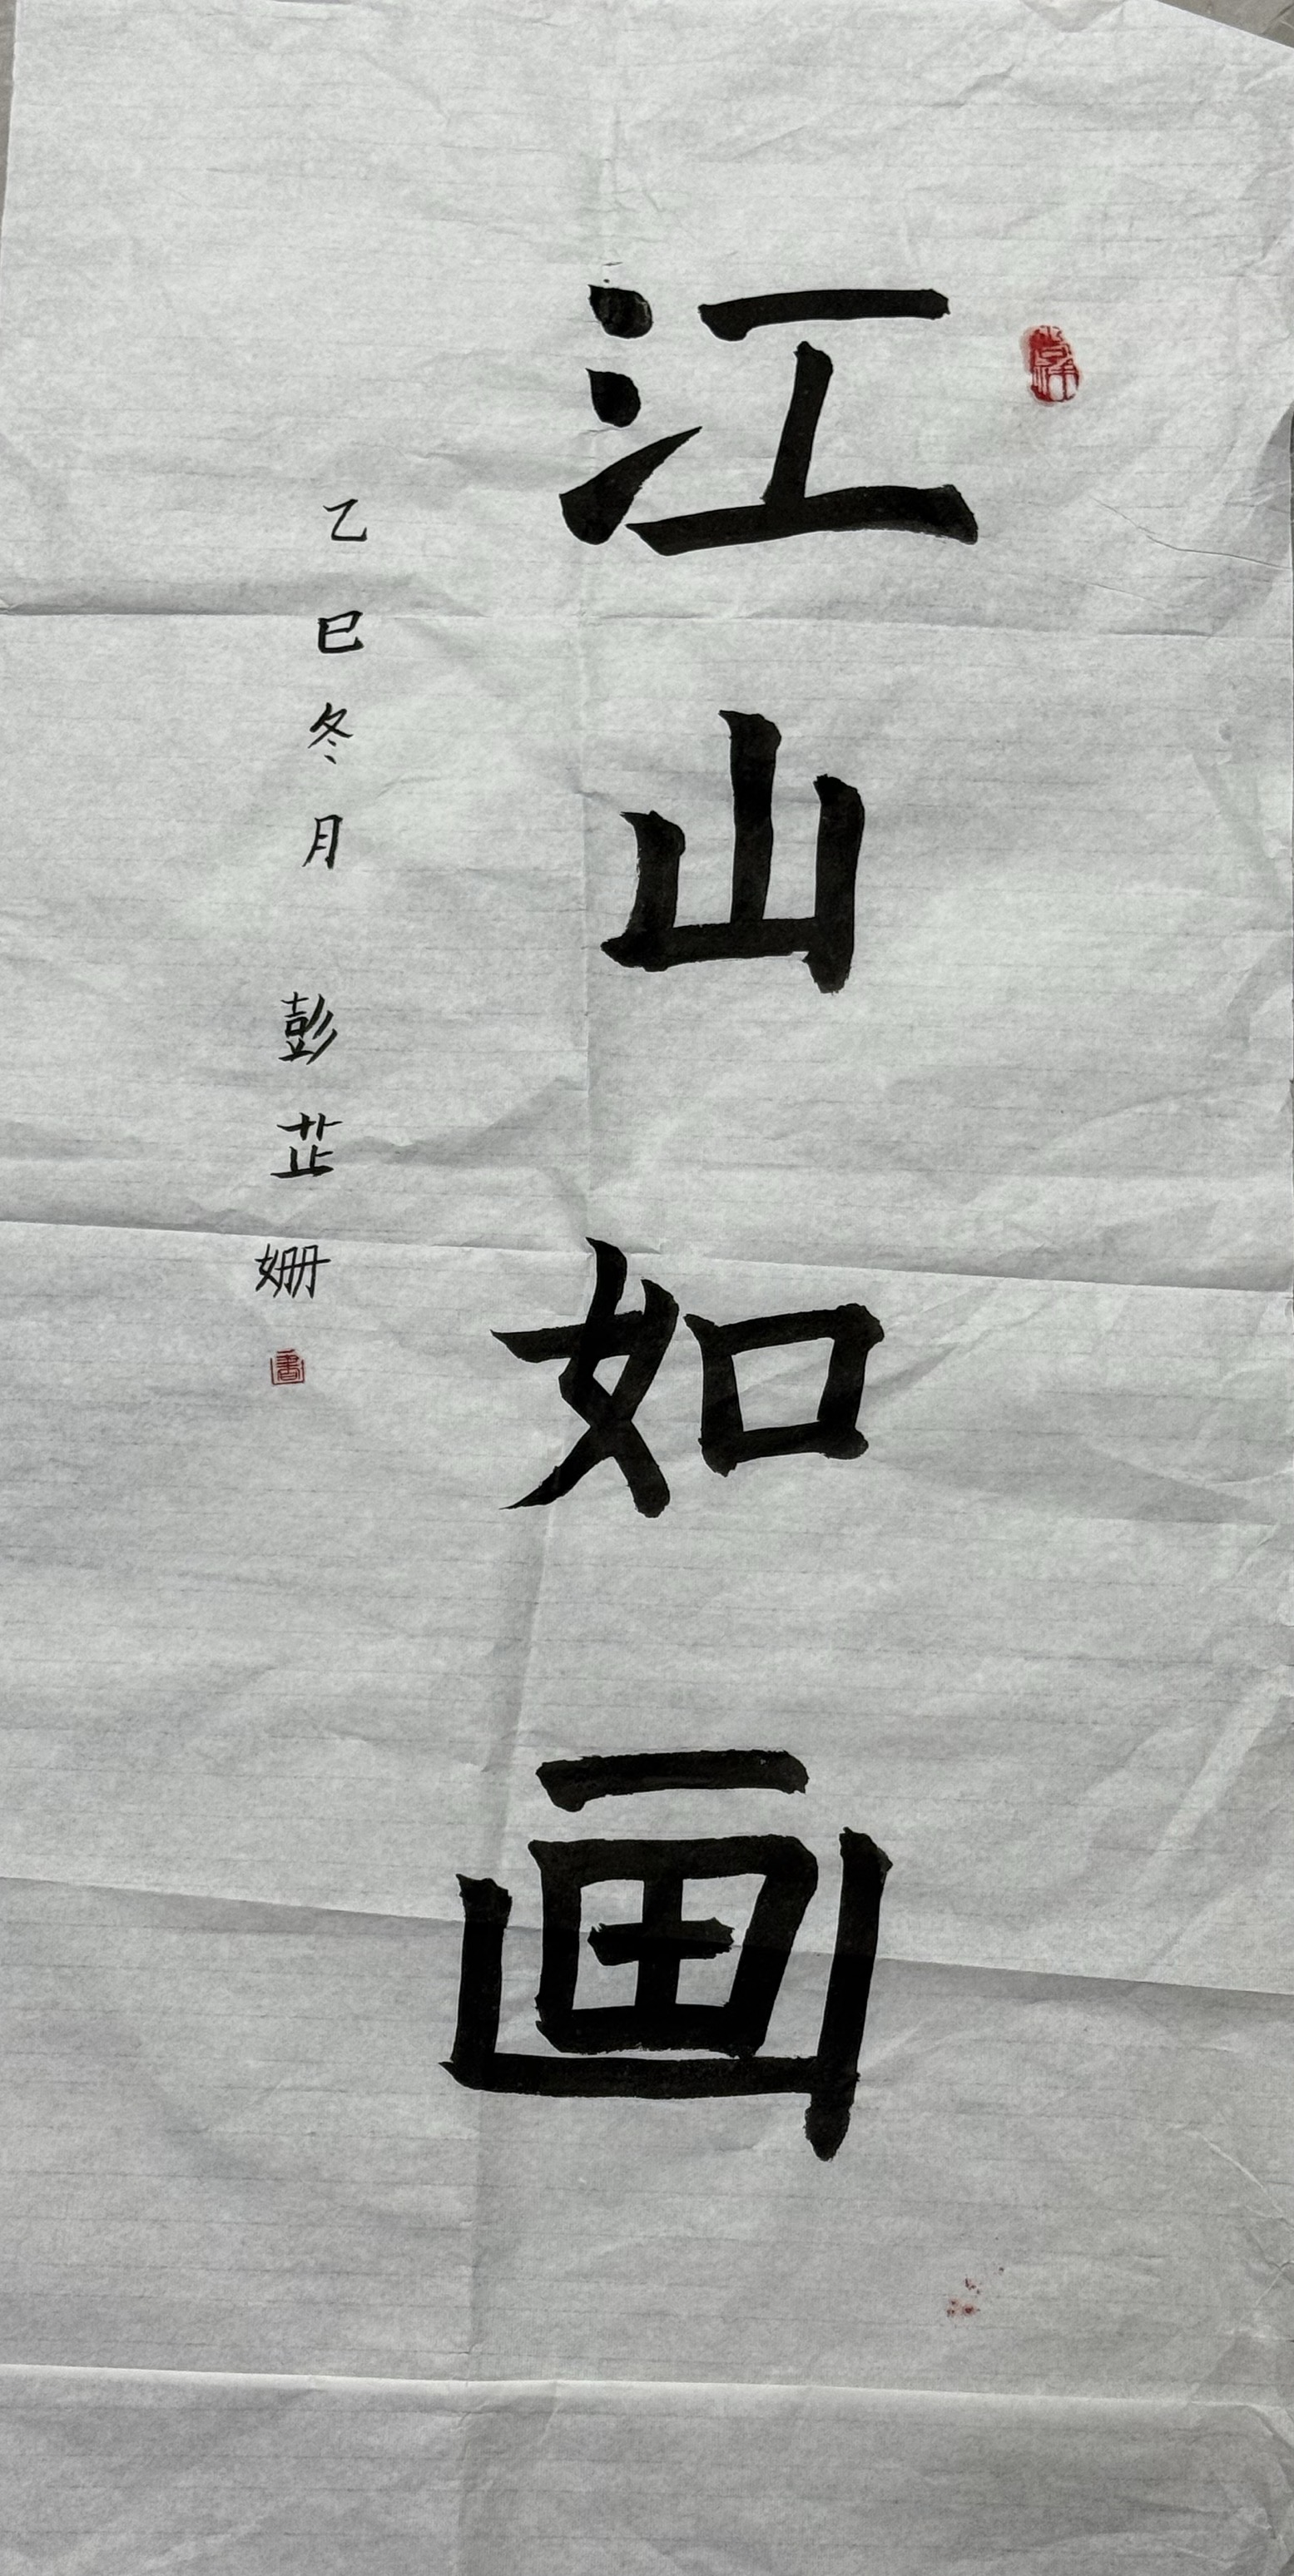 江山如画
乙巳冬月 彭芷姗
書